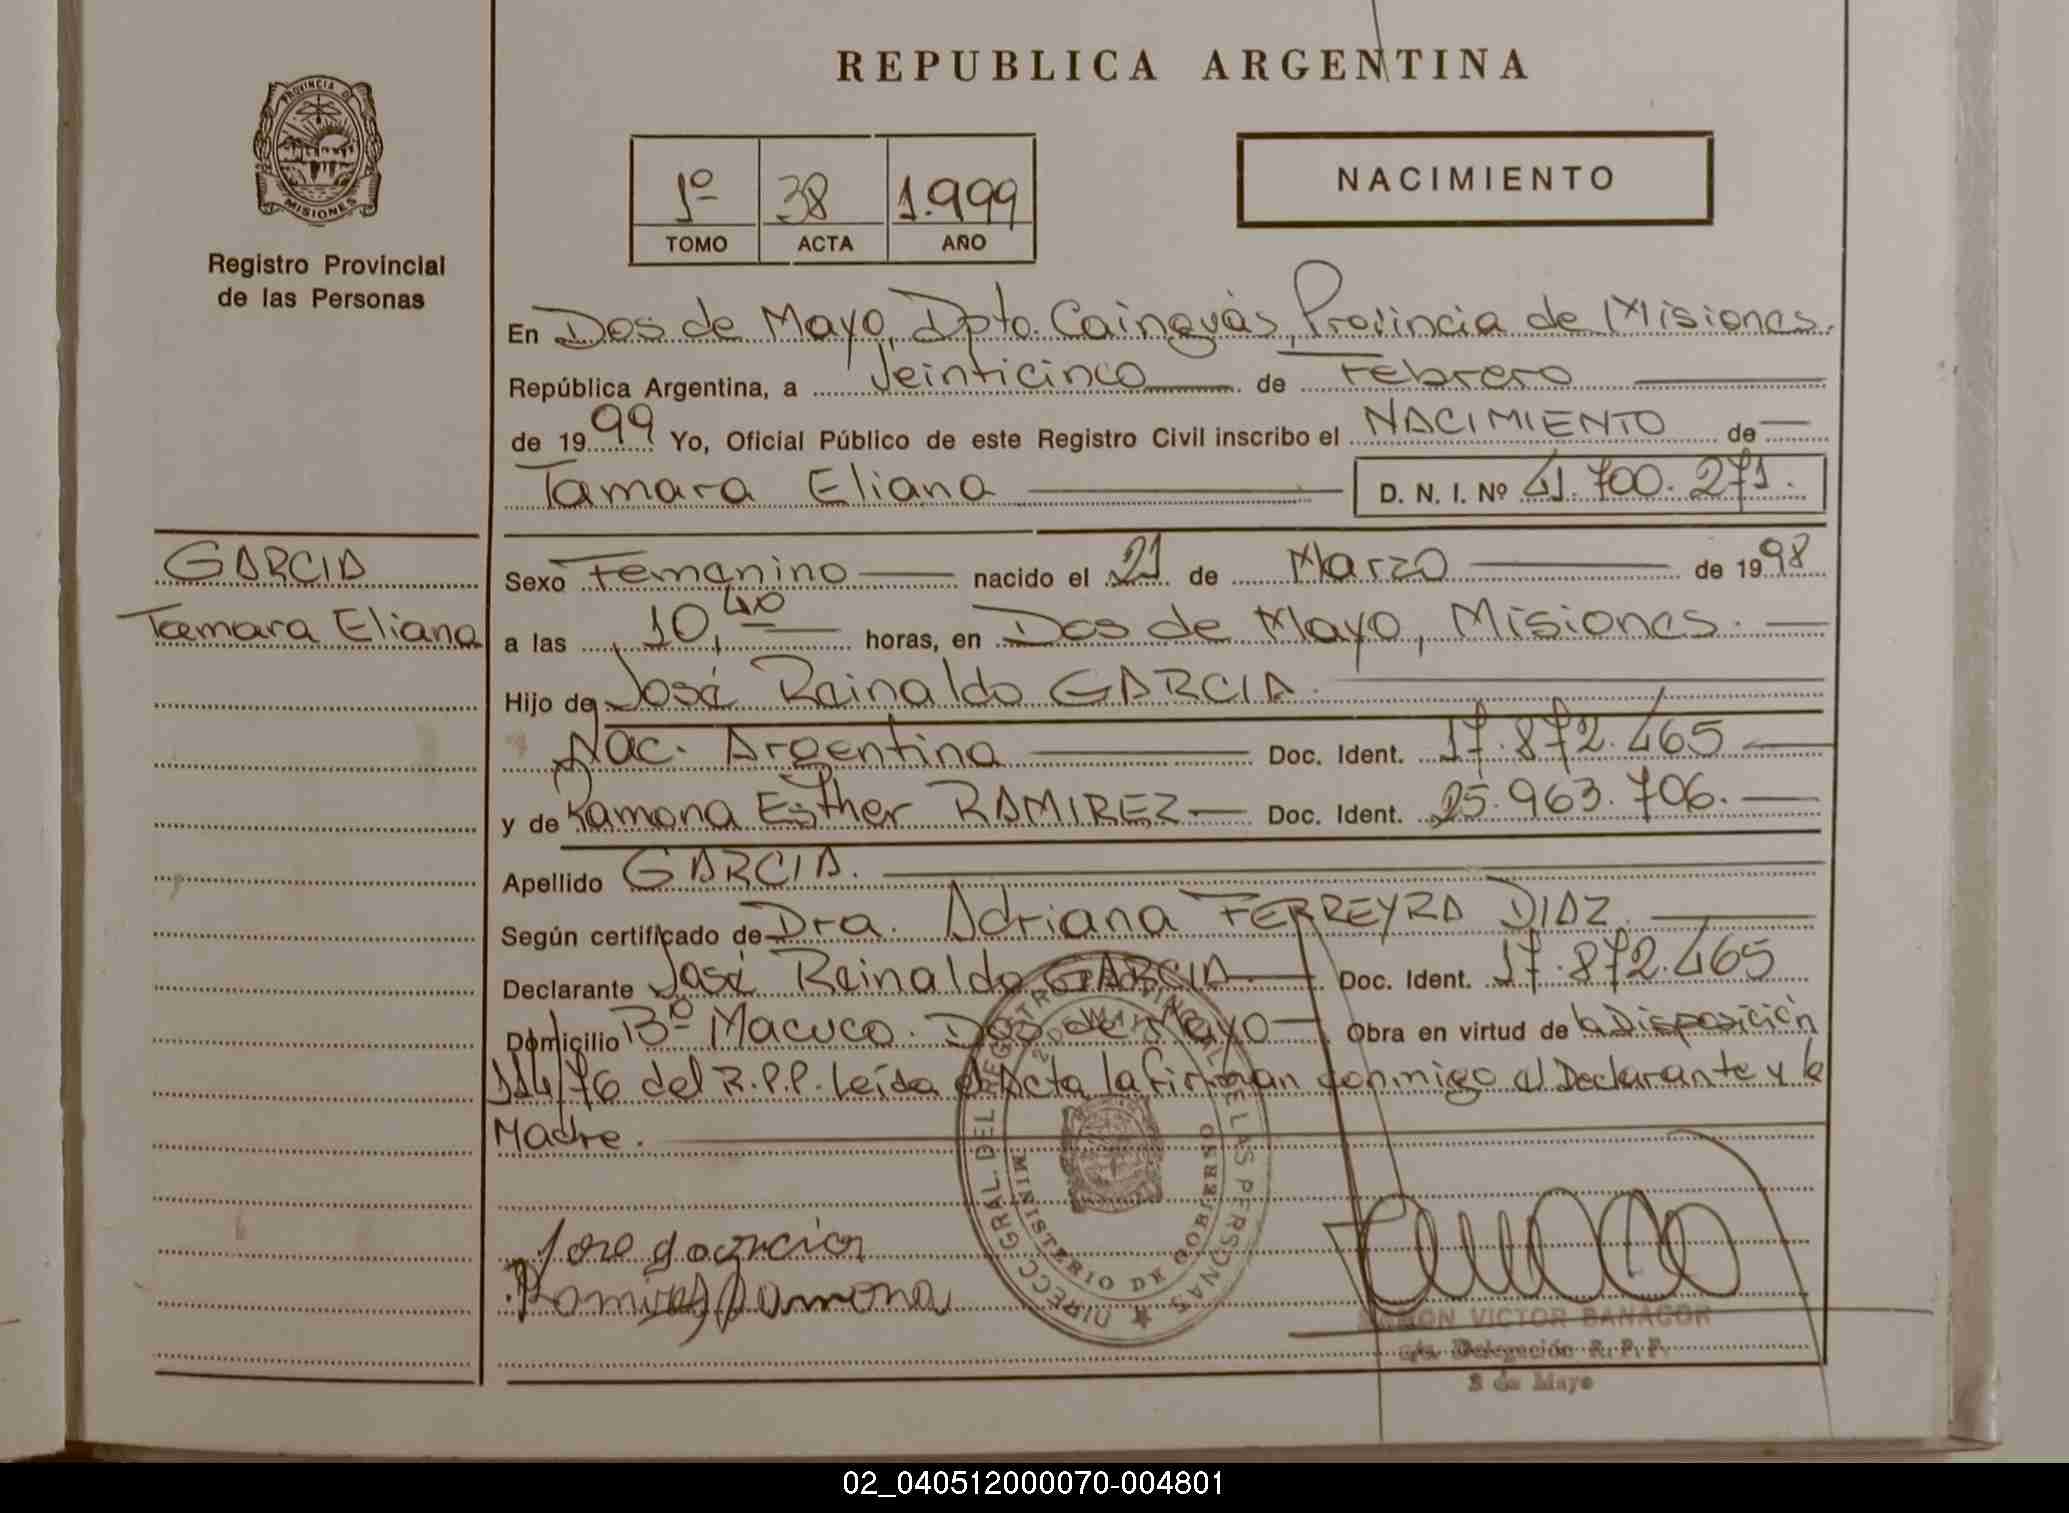 PROVINCIA DE
MISIONES
Registro Provincial
de las Personas
REPUBLICA ARGENTINA
1º 38 1.999
TOMO ACTA AÑO
NACIMIENTO
En Dos de Mayo, Dpto. Cainguás, Provincia de Misiones.
República Argentina, a Veinticinco de Febrero
de 1999 Yo, Oficial Público de este Registro Civil inscribo el NACIMIENTO de
Tamara Eliana D. N. I. Nº 41.700.271.
GARCIA
Tamara Eliana
Sexo Femenino nacido el 21 de Marzo de 1998
a las 10,40 horas, en Dos de Mayo, Misiones.
Hijo de José Reinaldo GARCIA.
Nac. Argentina Doc. Ident. 17.872.465
y de Ramona Esther RAMIREZ Doc. Ident. 25.963.706.
Apellido GARCIA.
Según certificado de Dra. Adriana FERREYRA DIAZ.
Declarante José Reinaldo GARCIA Doc. Ident. 17.872.465
Domicilio Bº Macuco. Dos de Mayo Obra en virtud de la Disposición
114/76 del R.P.P. Leída el Acta la firman conmigo el Declarante y la
Madre.
DIRECC. GRAL. DEL REGISTRO PROVINCIAL DE LAS PERSONAS
2 DE MAYO
MINISTERIO DE GOBIERNO
Jose garcia
Ramirez Ramona
RAMON VICTOR BANAGOR
Delegación R. P. P.
2 de Mayo
02_040512000070-004801